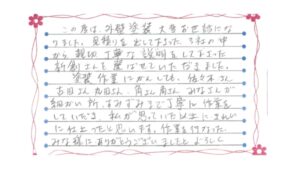 この度は、外壁塗装大変お世話にな
りました。見積りを出してもらった3社の中
から親切丁寧な説明をしてもらった
新創さんを選ばせていただきました。
塗装作業にかんしても、佐々木さん
吉田さん 丸田さん、角さん南さん みなさんが
細かい所、すみずみまで丁寧に作業を
していただき、私が思っていた以上にきれい
に仕上ったと思います。作業を行なった
みな様にありがとうございましたとよろしく